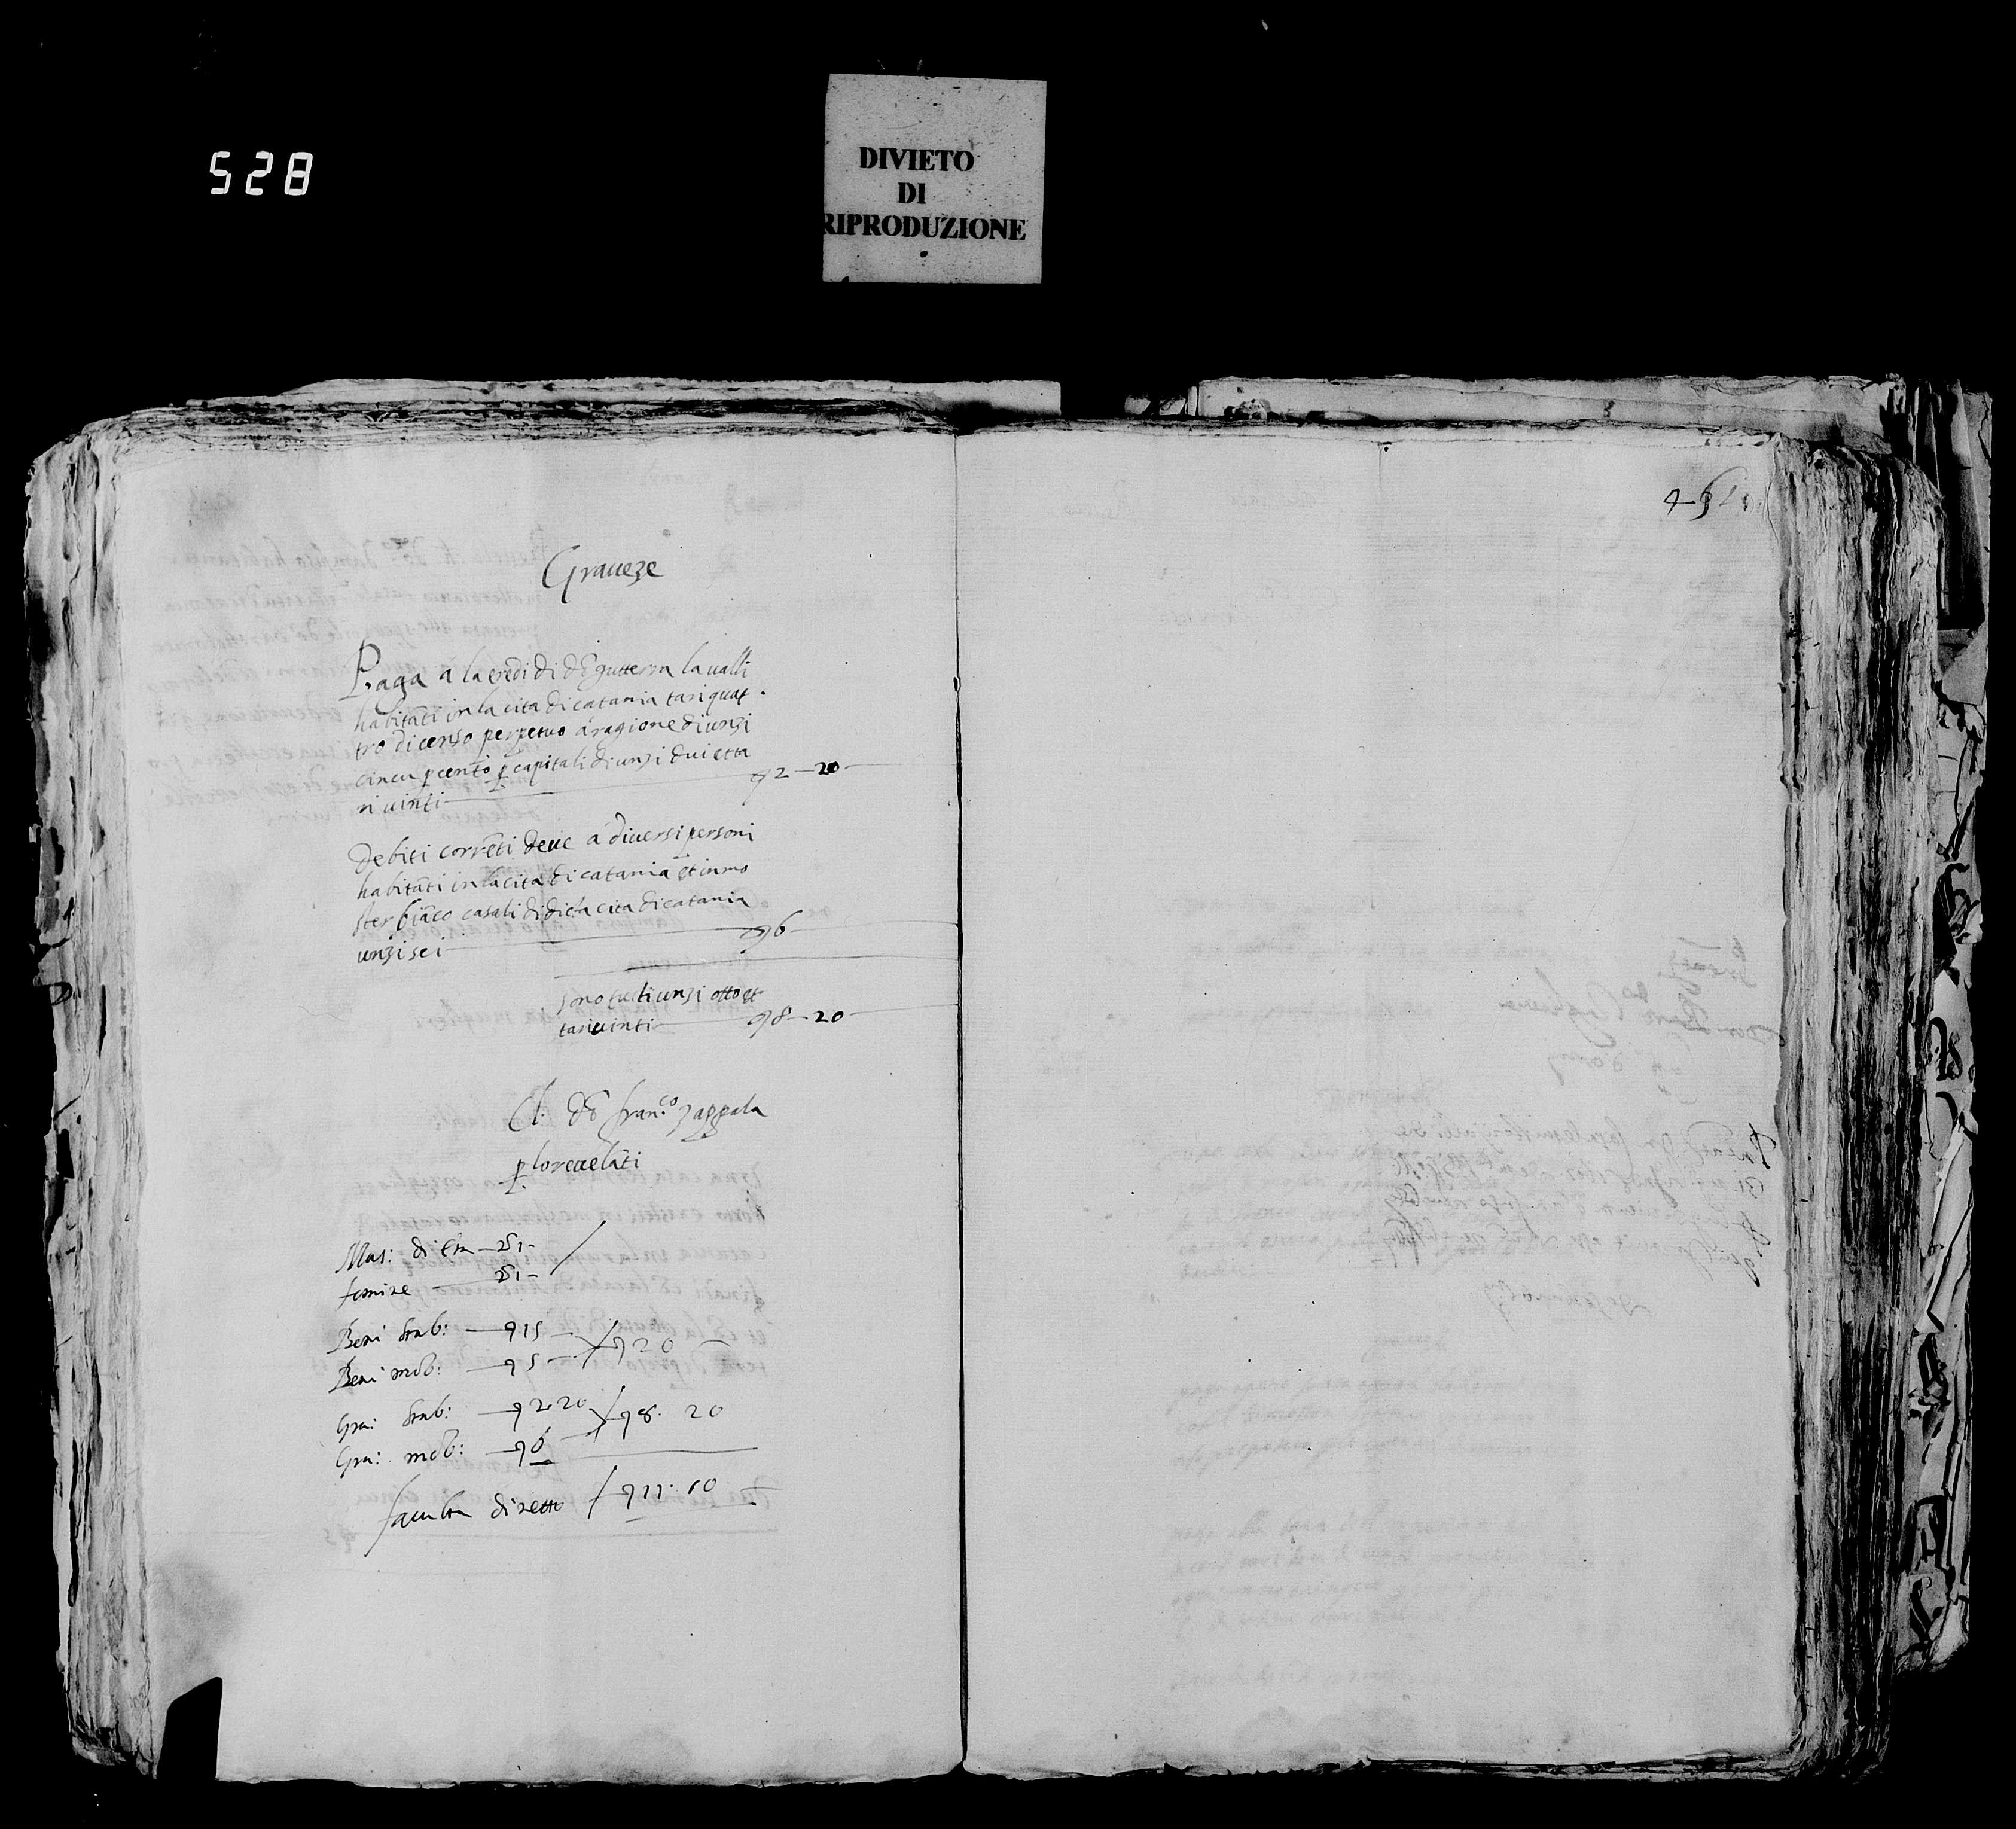 528
DIVIETO
DI
RIPRODUZIONE
Graueze
Paga a la eredi di dō gutterra la ualli
habitāti in la cita di catania tari quat
tro di censo perpetuo a ragione di unzi
cincu p cento p capitali di unzi dui et ta
ri uinti 2–20
Debiti corrēti deue a diuersi personi
habitāti in la cita di catania et in mo
ster biāco casali di dicta cita di catania
unzi sei 6
sono tutti unzi otto et
tari uinti 8–20
Cl. dō Fran.co zappala
p lo reuelāti
Mas: di Eta 1
femine 1
Beni stab: 15 20
Beni mob: 5
Gra: stab: 2 20 8. 20
Gra: mob: 6
faculta di netto 11. 10